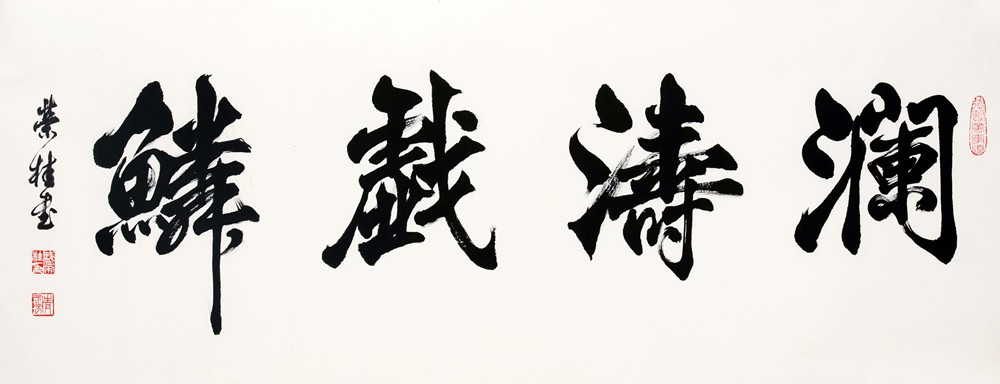 瀾濤戲鱗
榮桂書